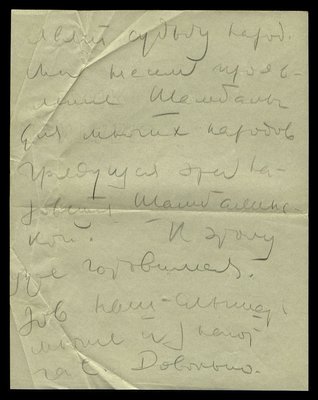 лает судьбу народ.
Мы несем прояв-
ление Шамбалы
для многих народов
Грядущая эра на-
зовется Шамбалинс-
кой. К этому
уже готовимся.
Зов наш слышат
многие
Довольно.